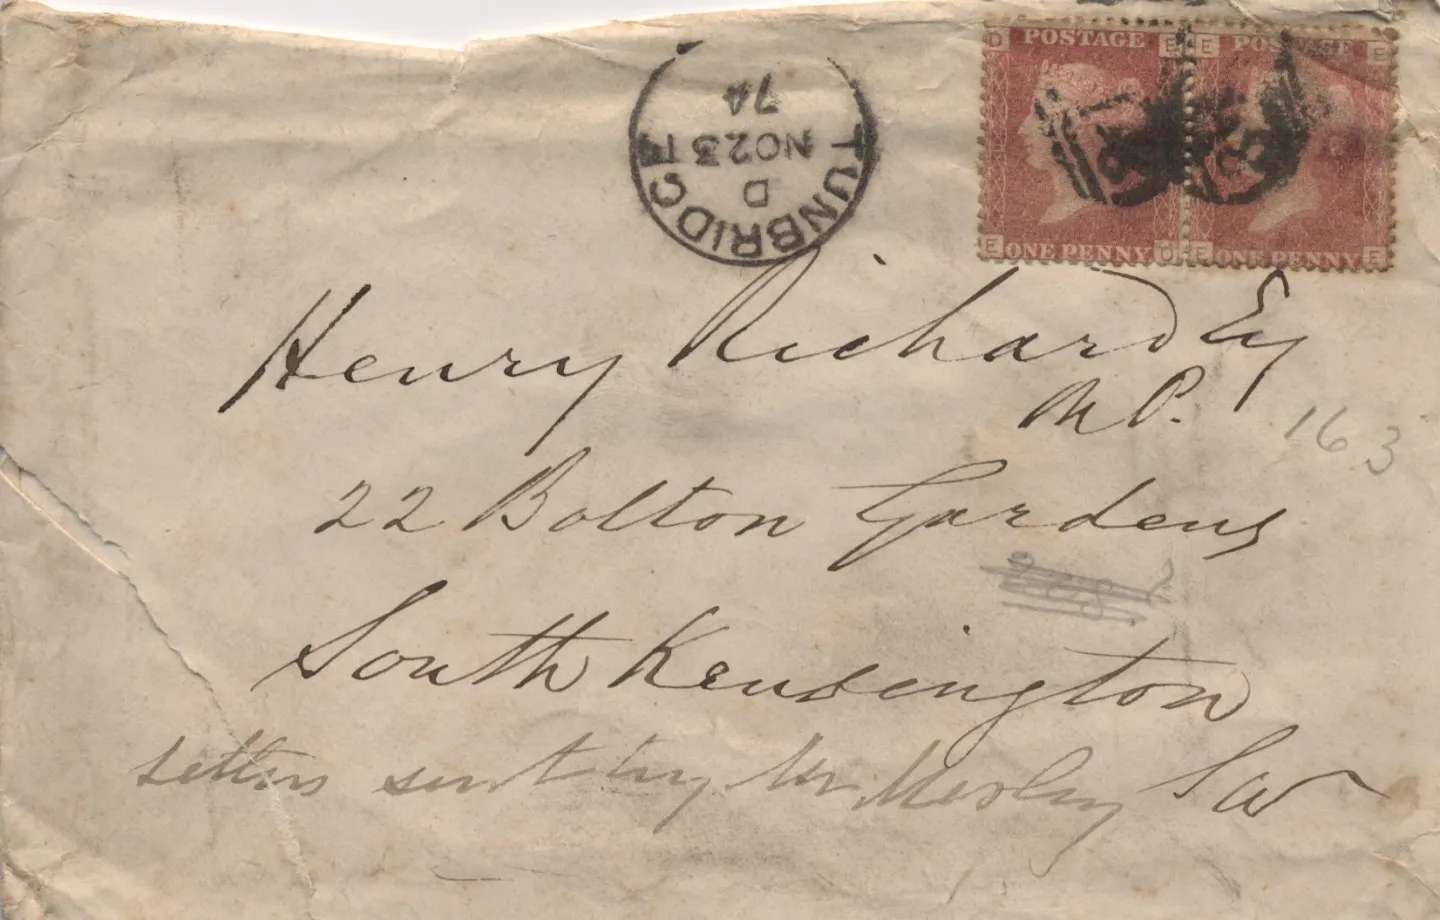 POSTAGE POSTAGE
D E E E
ONE PENNY ONE PENNY
TUNBRIDGE
D
NO 23
74
Henry Richard Esq
M P.
163
22 Bolton Gardens
South Kensington
S W
Letters sent by Mr